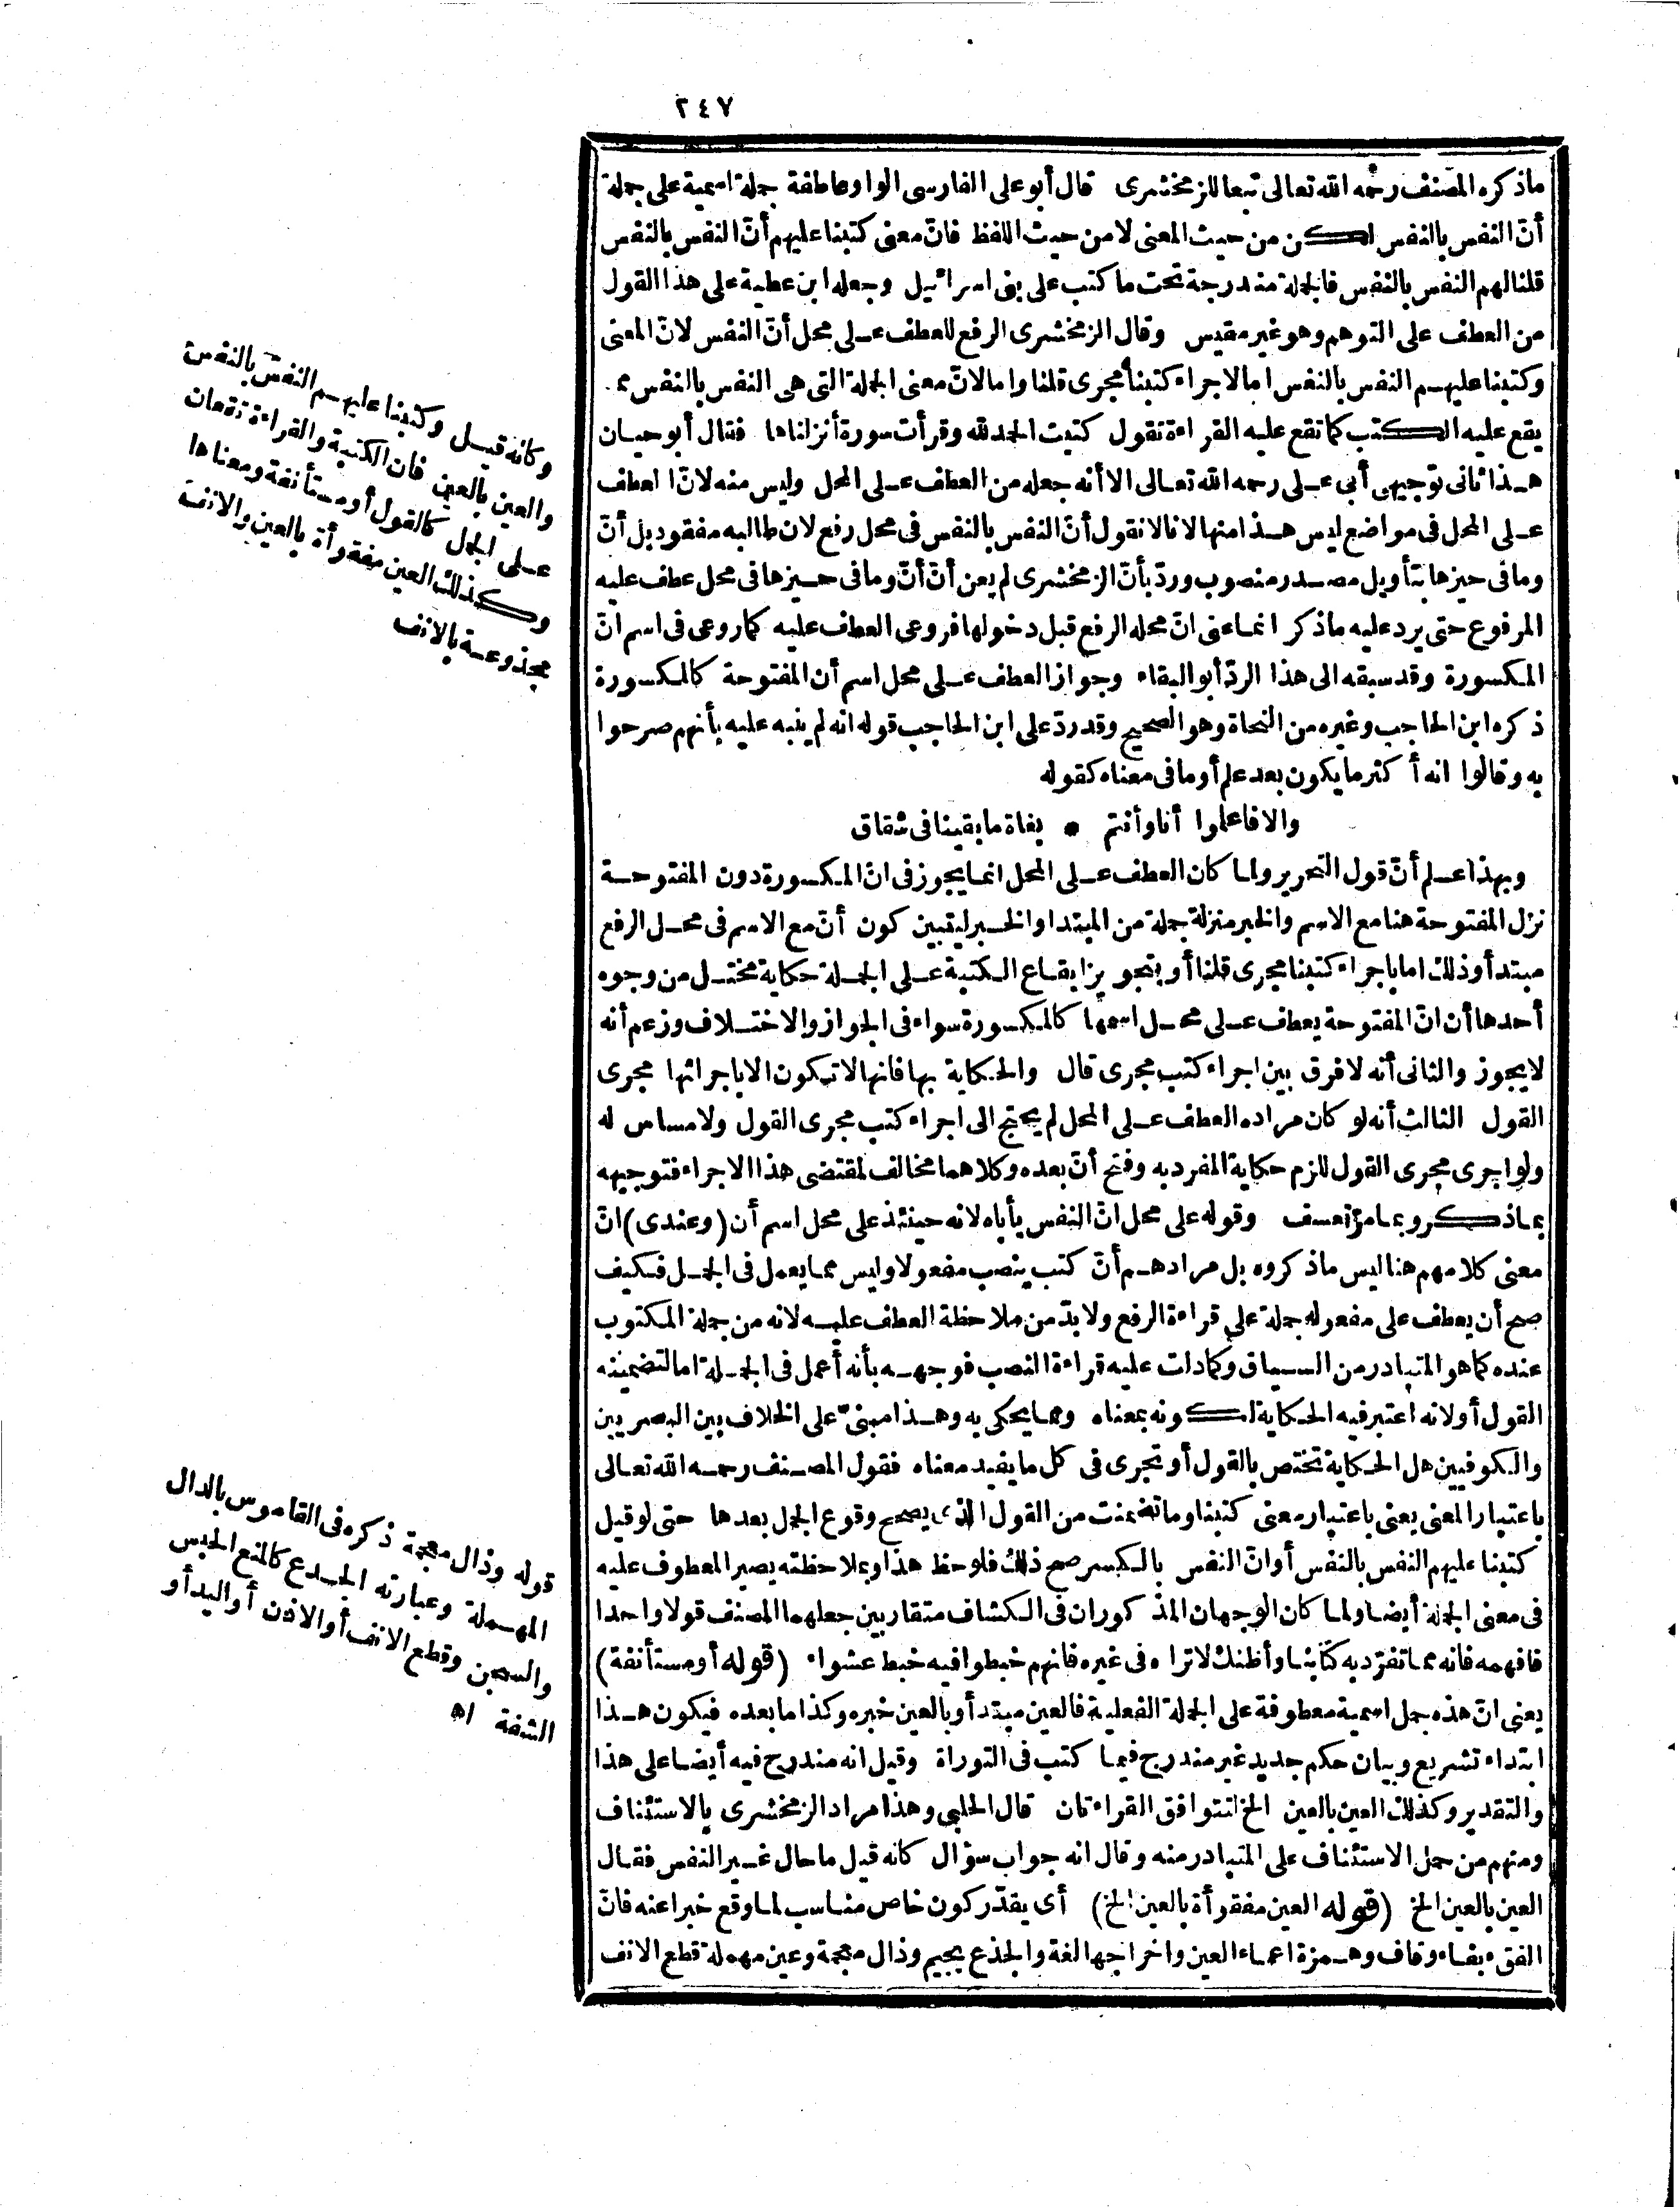 ٢٤٧
ماذكره المصنف رحمه الله تعالى تبعا للزمخشرى قال أبو على الفارسى الواو عاطفة جملة اسمية على جملة
أنّ النفس بالنفس لكن من حيث المعنى لا من حيث اللفظ فانّ معنى كتبنا عليهم أنّ النفس بالنفس
قلنا لهم النفس بالنفس فالجملة مندرجة تحت ما كتب على بنى اسرائيل وجعله ابن عطية على هذا القول
من العطف على التوهم وهو غير مقيس وقال الزمخشرى الرفع للعطف على محل أنّ النفس لانّ المعنى
وكتبنا عليهم النفس بالنفس اما لاجراء كتبنا مجرى قلنا واما لانّ معنى الجملة التى هى النفس بالنفس مما
يقع عليه الكتب كما تقع عليه القراءة تقول كتبت الحمد لله وقرأت سورة أنزلناها فقال أبو حيان
هذا ثانى توجيهى أبى على رحمه الله تعالى الا أنه جعله من العطف على المحل وليس منه لانّ العطف
على المحل فى مواضع ليس هذا منها لانا لا نقول أنّ النفس بالنفس فى محل رفع لان طالبه مفقود بل أنّ
وما فى حيزها بتأويل مصدر منصوب وردّ بأنّ الزمخشرى لم يعن أنّ أنّ وما فى حيزها فى محل عطف عليه
المرفوع حتى يرد عليه ما ذكر انما عنى انّ محله الرفع قبل دخولها فروعى العطف عليه كما روعى فى اسم انّ
المكسورة وقد سبقه الى هذا الردّ أبو البقاء وجواز العطف على محل اسم أن المفتوحة كالمكسورة
ذكره ابن الحاجب وغيره من النحاة وهو الصحيح وقد ردّ على ابن الحاجب قوله انه لم ينبه عليه بأنهم صرحوا
به وقالوا انه أكثر ما يكون بعد علم أو ما فى معناه كقوله
والا فاعلموا أنا وأنتم • بغاة ما بقينا فى شقاق
وبهذا علم أنّ قول النحرير ولما كان العطف على المحل انما يجوز فى انّ المكسورة دون المفتوحة
نزل المفتوحة هنا مع الاسم والخبر منزلة جملة من المبتدا والخبر ليتبين كون أنّ مع الاسم فى محل الرفع
مبتدأ وذلك اما باجراء كتبنا مجرى قلنا أو بتجويز ايقاع الكتبة على الجملة حكاية مختل من وجوه
أحدها أن انّ المفتوحة يعطف على محل اسمها كالمكسورة سواء فى الجواز والاختلاف وزعم أنه
لا يجوز والثانى أنه لا فرق بين اجراء كتب مجرى قال والحكاية بها فانها لا تكون الا باجرائها مجرى
القول الثالث أنه لو كان مراده العطف على المحل لم يحتج الى اجراء كتب مجرى القول ولا مساس له
ولو اجرى مجرى القول للزم حكاية المفرد به وفتح أنّ بعده وكلاهما مخالف لمقتضى هذا الاجراء فتوجيهه
بما ذكر وبما مرّ تعسف وقوله على محل انّ النفس يأباه لانه حينئذ على محل اسم أن (وعندى) انّ
معنى كلامهم هنا ليس ما ذكروه بل مرادهم أنّ كتب ينصب مفعولا وليس مما يعمل فى الجمل فكيف
صح أن يعطف على مفعوله جملة على قراءة الرفع ولا بدّ من ملاحظة العطف عليه لانه من جملة المكتوب
عنده كما هو المتبادر من السياق وكما دلت عليه قراءة النصب فوجهه بأنه أعمل فى الجملة اما لتضمينه
القول أو لانه اعتبر فيه الحكاية لكونه بمعناه ومما يحكى به وهذا مبنىّ على الخلاف بين البصريين
والكوفيين هل الحكاية تختص بالقول أو تجرى فى كل ما يفيد معناه فقول المصنف رحمه الله تعالى
باعتبار المعنى يعنى باعتبار معنى كتبنا وما تضمنت من القول الذى يصحح وقوع الجمل بعدها حتى لو قيل
كتبنا عليهم النفس بالنفس أو انّ النفس بالكسر صح ذلك فلوحظ هذا وبملاحظته يصير المعطوف عليه
فى معنى الجملة أيضا ولما كان الوجهان المذكوران فى الكشاف متقاربين جعلهما المصنف قولا واحدا
فافهمه فانه مما تفرّد به كتابنا وأظنك لا تراه فى غيره فانهم خبطوا فيه خبط عشواء (قوله أو مستأنفة)
يعنى انّ هذه جمل اسمية معطوفة على الجملة الفعلية فالعين مبتدأ وبالعين خبره وكذا ما بعده فيكون هذا
ابتداء تشريع وبيان حكم جديد غير مندرج فيما كتب فى التوراة وقيل انه مندرج فيه أيضا على هذا
والتقدير وكذلك العين بالعين الخ لتتوافق القراءتان قال الحلبى وهذا مراد الزمخشرى بالاستئناف
ومنهم من حمل الاستئناف على المتبادر منه وقال انه جواب سؤال كأنه قيل ما حال غير النفس فقال
العين بالعين الخ (قوله العين مفقوأة بالعين الخ) أى يقدّر كون خاص مناسب لما وقع خبرا عنه فانّ
الفقء بفاء وقاف وهمزة اعماء العين واخراجها لغة والجذع بجيم وذال معجمة وعين مهملة قطع الانف
وكانه قيل وكتبنا عليهم النفس بالنفس
والعين بالعين فان الكتبة والقراءة تقعان
على الجمل كالقول أو مستأنفة ومعناها
وكذلك العين مفقوأة بالعين والانف
مجذوعة بالانف
قوله وذال معجمة ذكره فى القاموس بالدال
المهملة وعبارته الجدع كالمنع الحبس
والسجن وقطع الانف أو الاذن أو اليد أو
الشفة اه